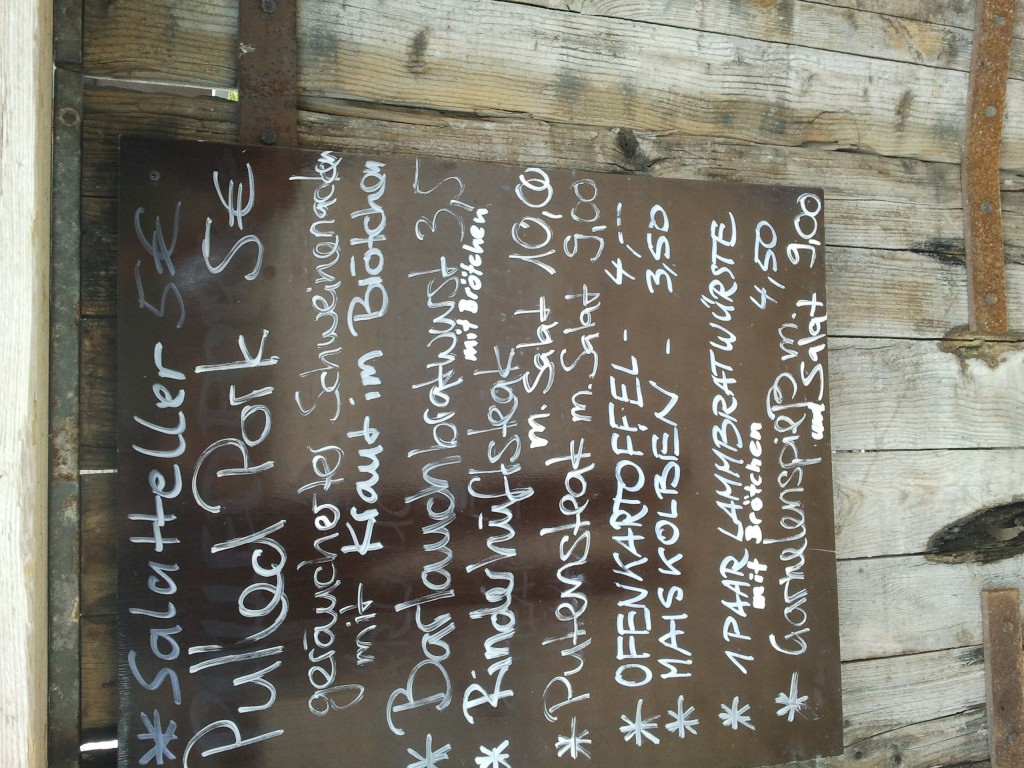 * Salatteller 5€
Pulled Pork 5€
geräucherter Schweinenacken
mit Kraut im Brötchen
* Bärlauchbratwurst 3,5
mit Brötchen
* Rinderhüftsteak
m. Salat 10,00
* Putensteak m. Salat 9,00
* OFFENKARTOFFEL - 4,--
* MAISKOLBEN - 3,50
* 1 PAAR LAMMBRATWÜRSTE
mit Brötchen 4,50
* Garnelenspieß m.
und Salat 9,00